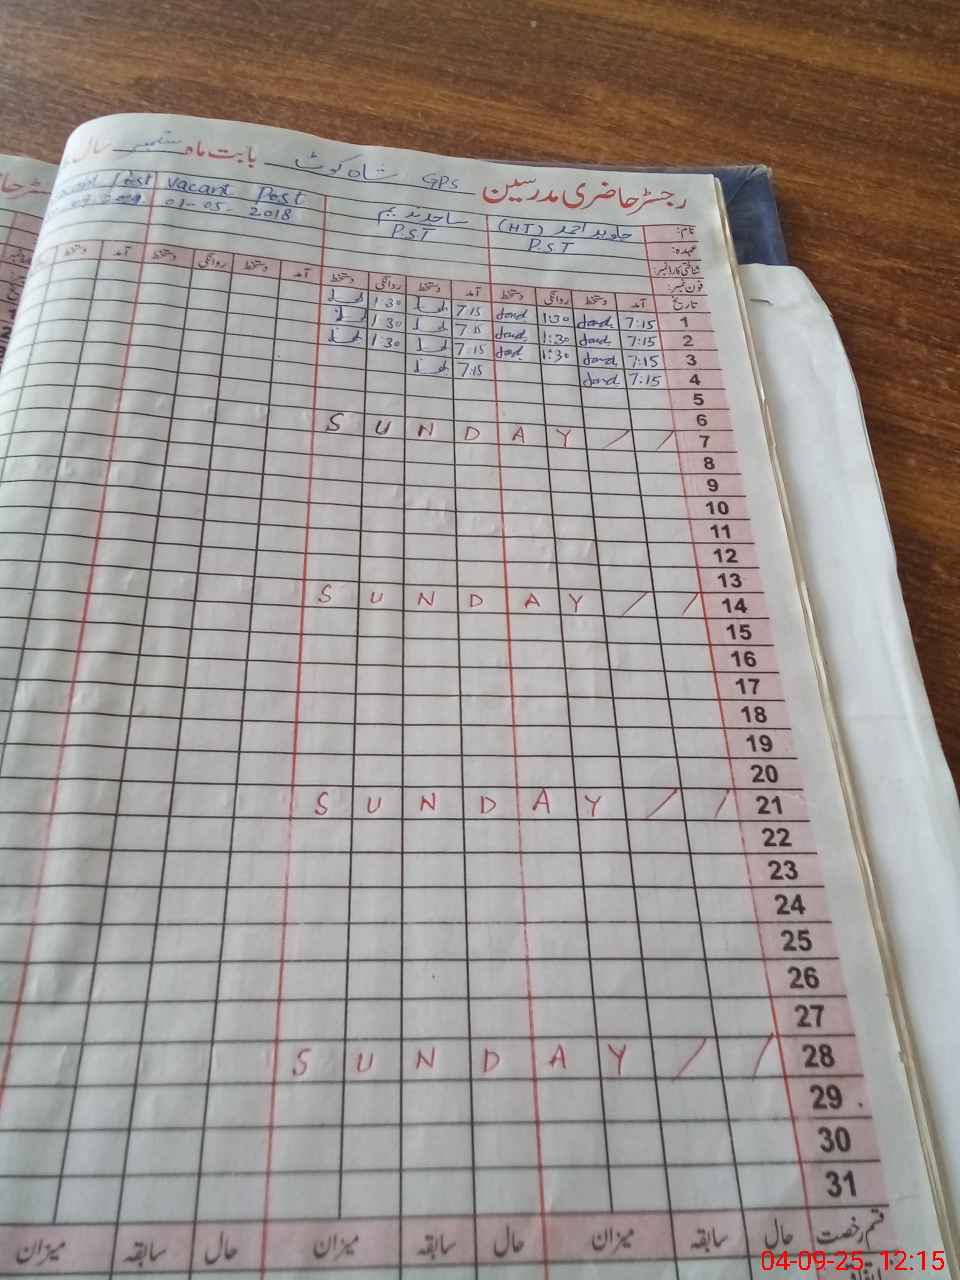 رجسٹر حاضری مدرسین GPS شاہ کوٹ بابت ماہ ستمبر سال
نام: جاوید احمد (HT) ساجد ندیم Vacant Post Vacant Post
عہدہ: P.S.T P.S.T 01-05-2018
شناختی کارڈ نمبر:
فون نمبر:
تاریخ آمد دستخط روانگی دستخط آمد دستخط روانگی دستخط آمد دستخط روانگی دستخط آمد دستخط
1 7:15 1:30 7:15 1:30
2 7:15 1:30 7:15 1:30
3 7:15 1:30 7:15 1:30
4 7:15 7:15
5
6
7 S U N D A Y / /
8
9
10
11
12
13
14 S U N D A Y / /
15
16
17
18
19
20
21 S U N D A Y / /
22
23
24
25
26
27
28 S U N D A Y / /
29
30
31
قسم رخصت حال سابقہ میزان حال سابقہ میزان حال سابقہ میزان
04-09-25 12:15